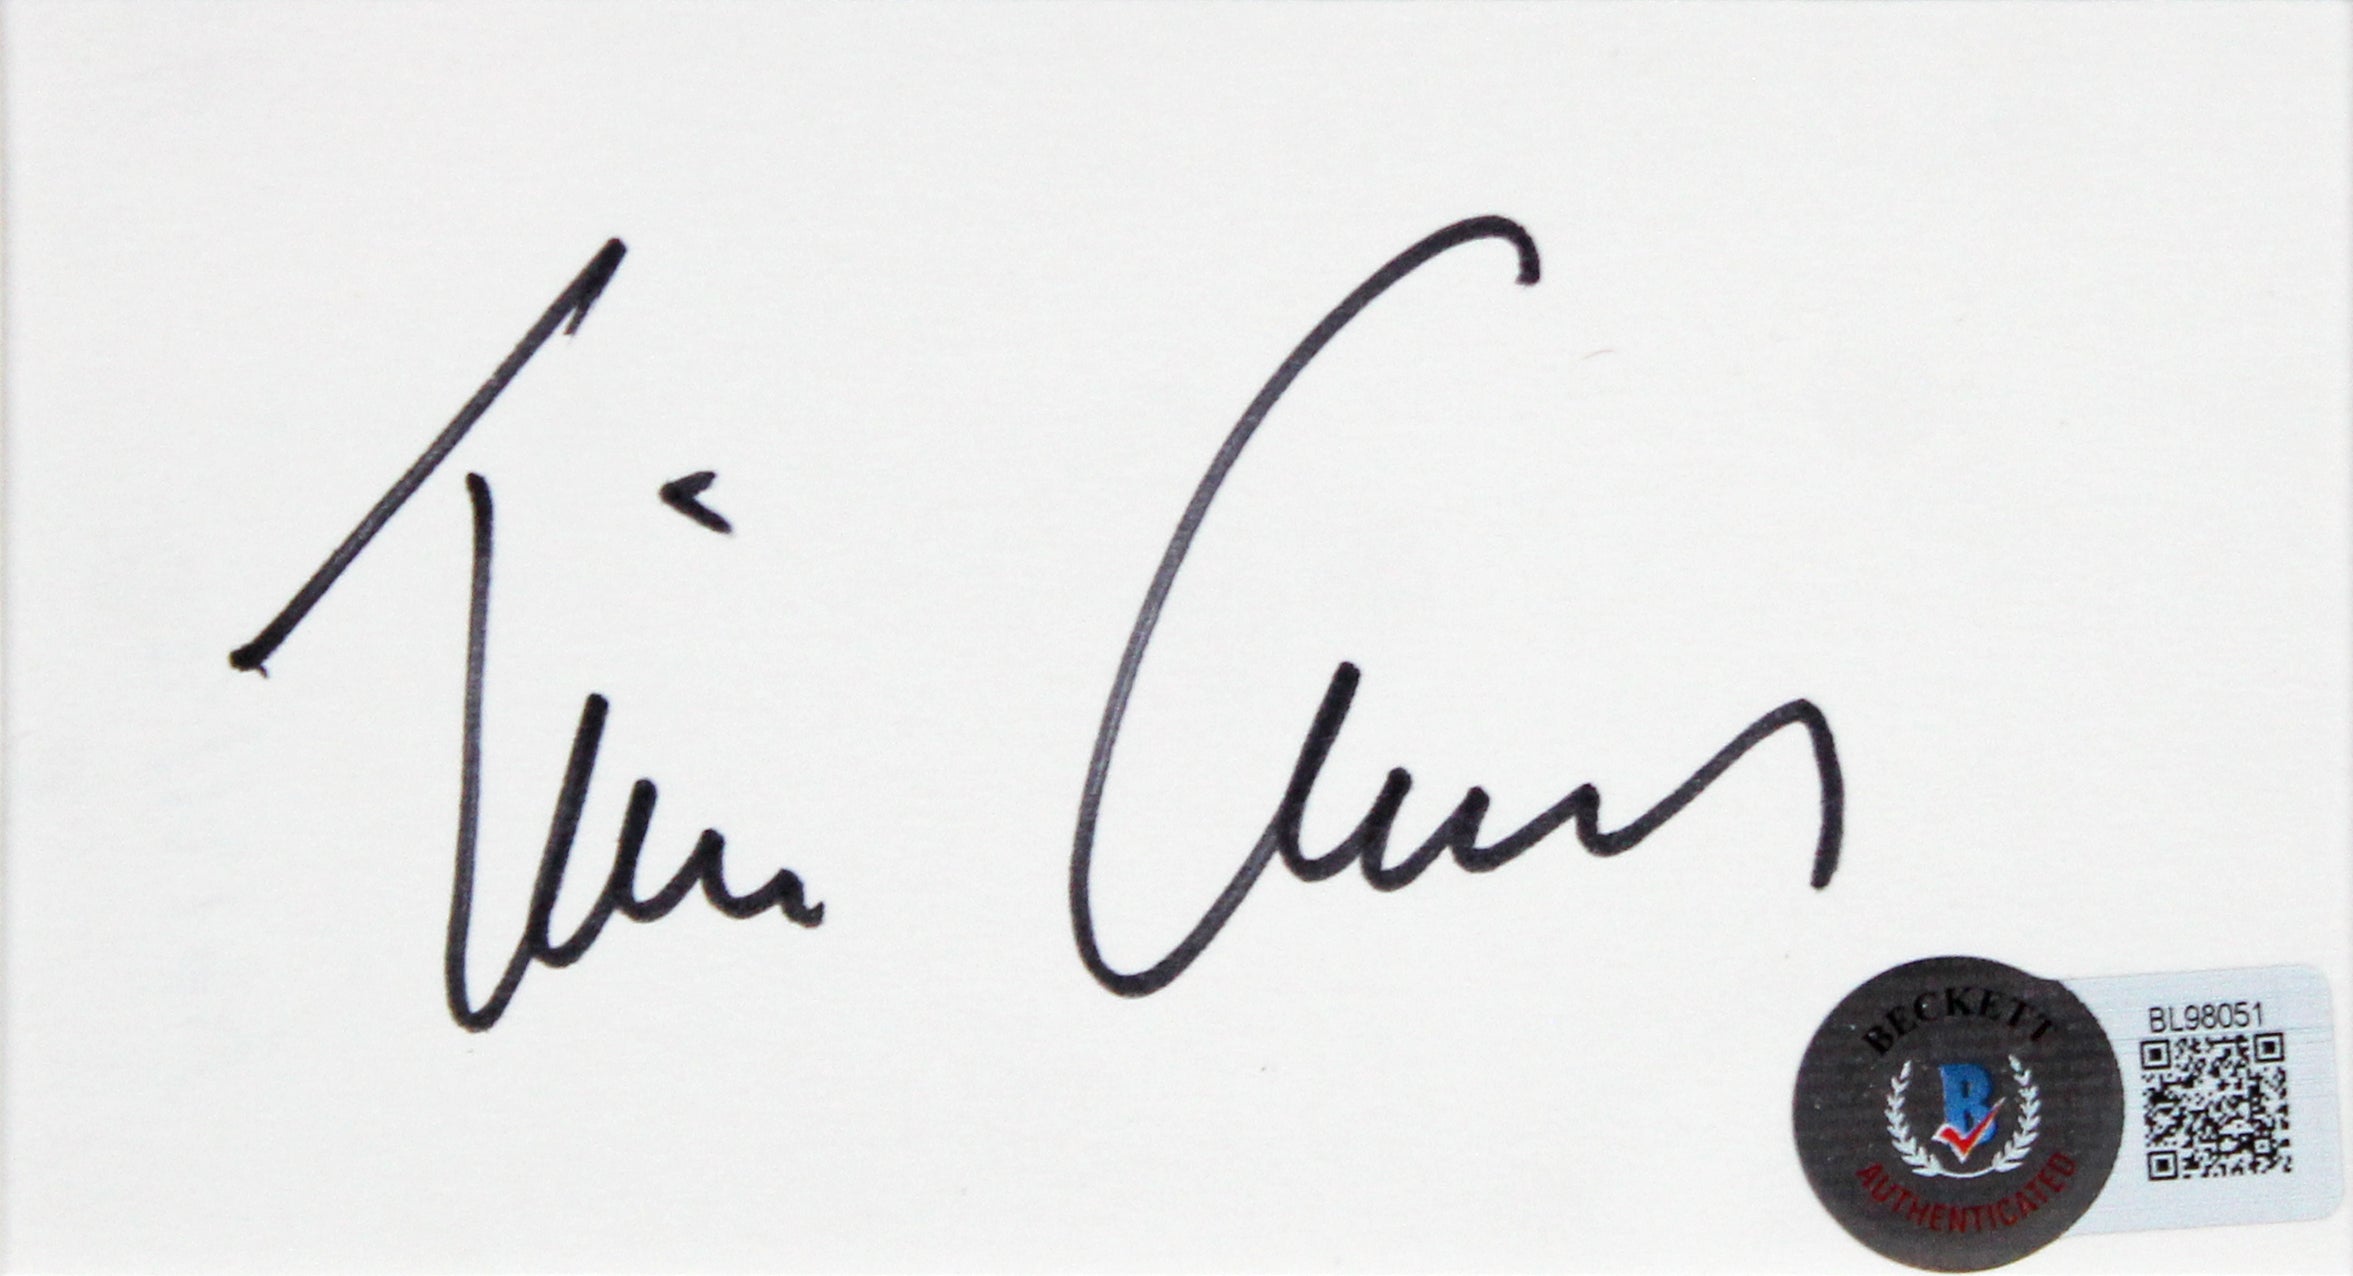 Tim Curry
BECKETT
B
AUTHENTICATED
BL98051